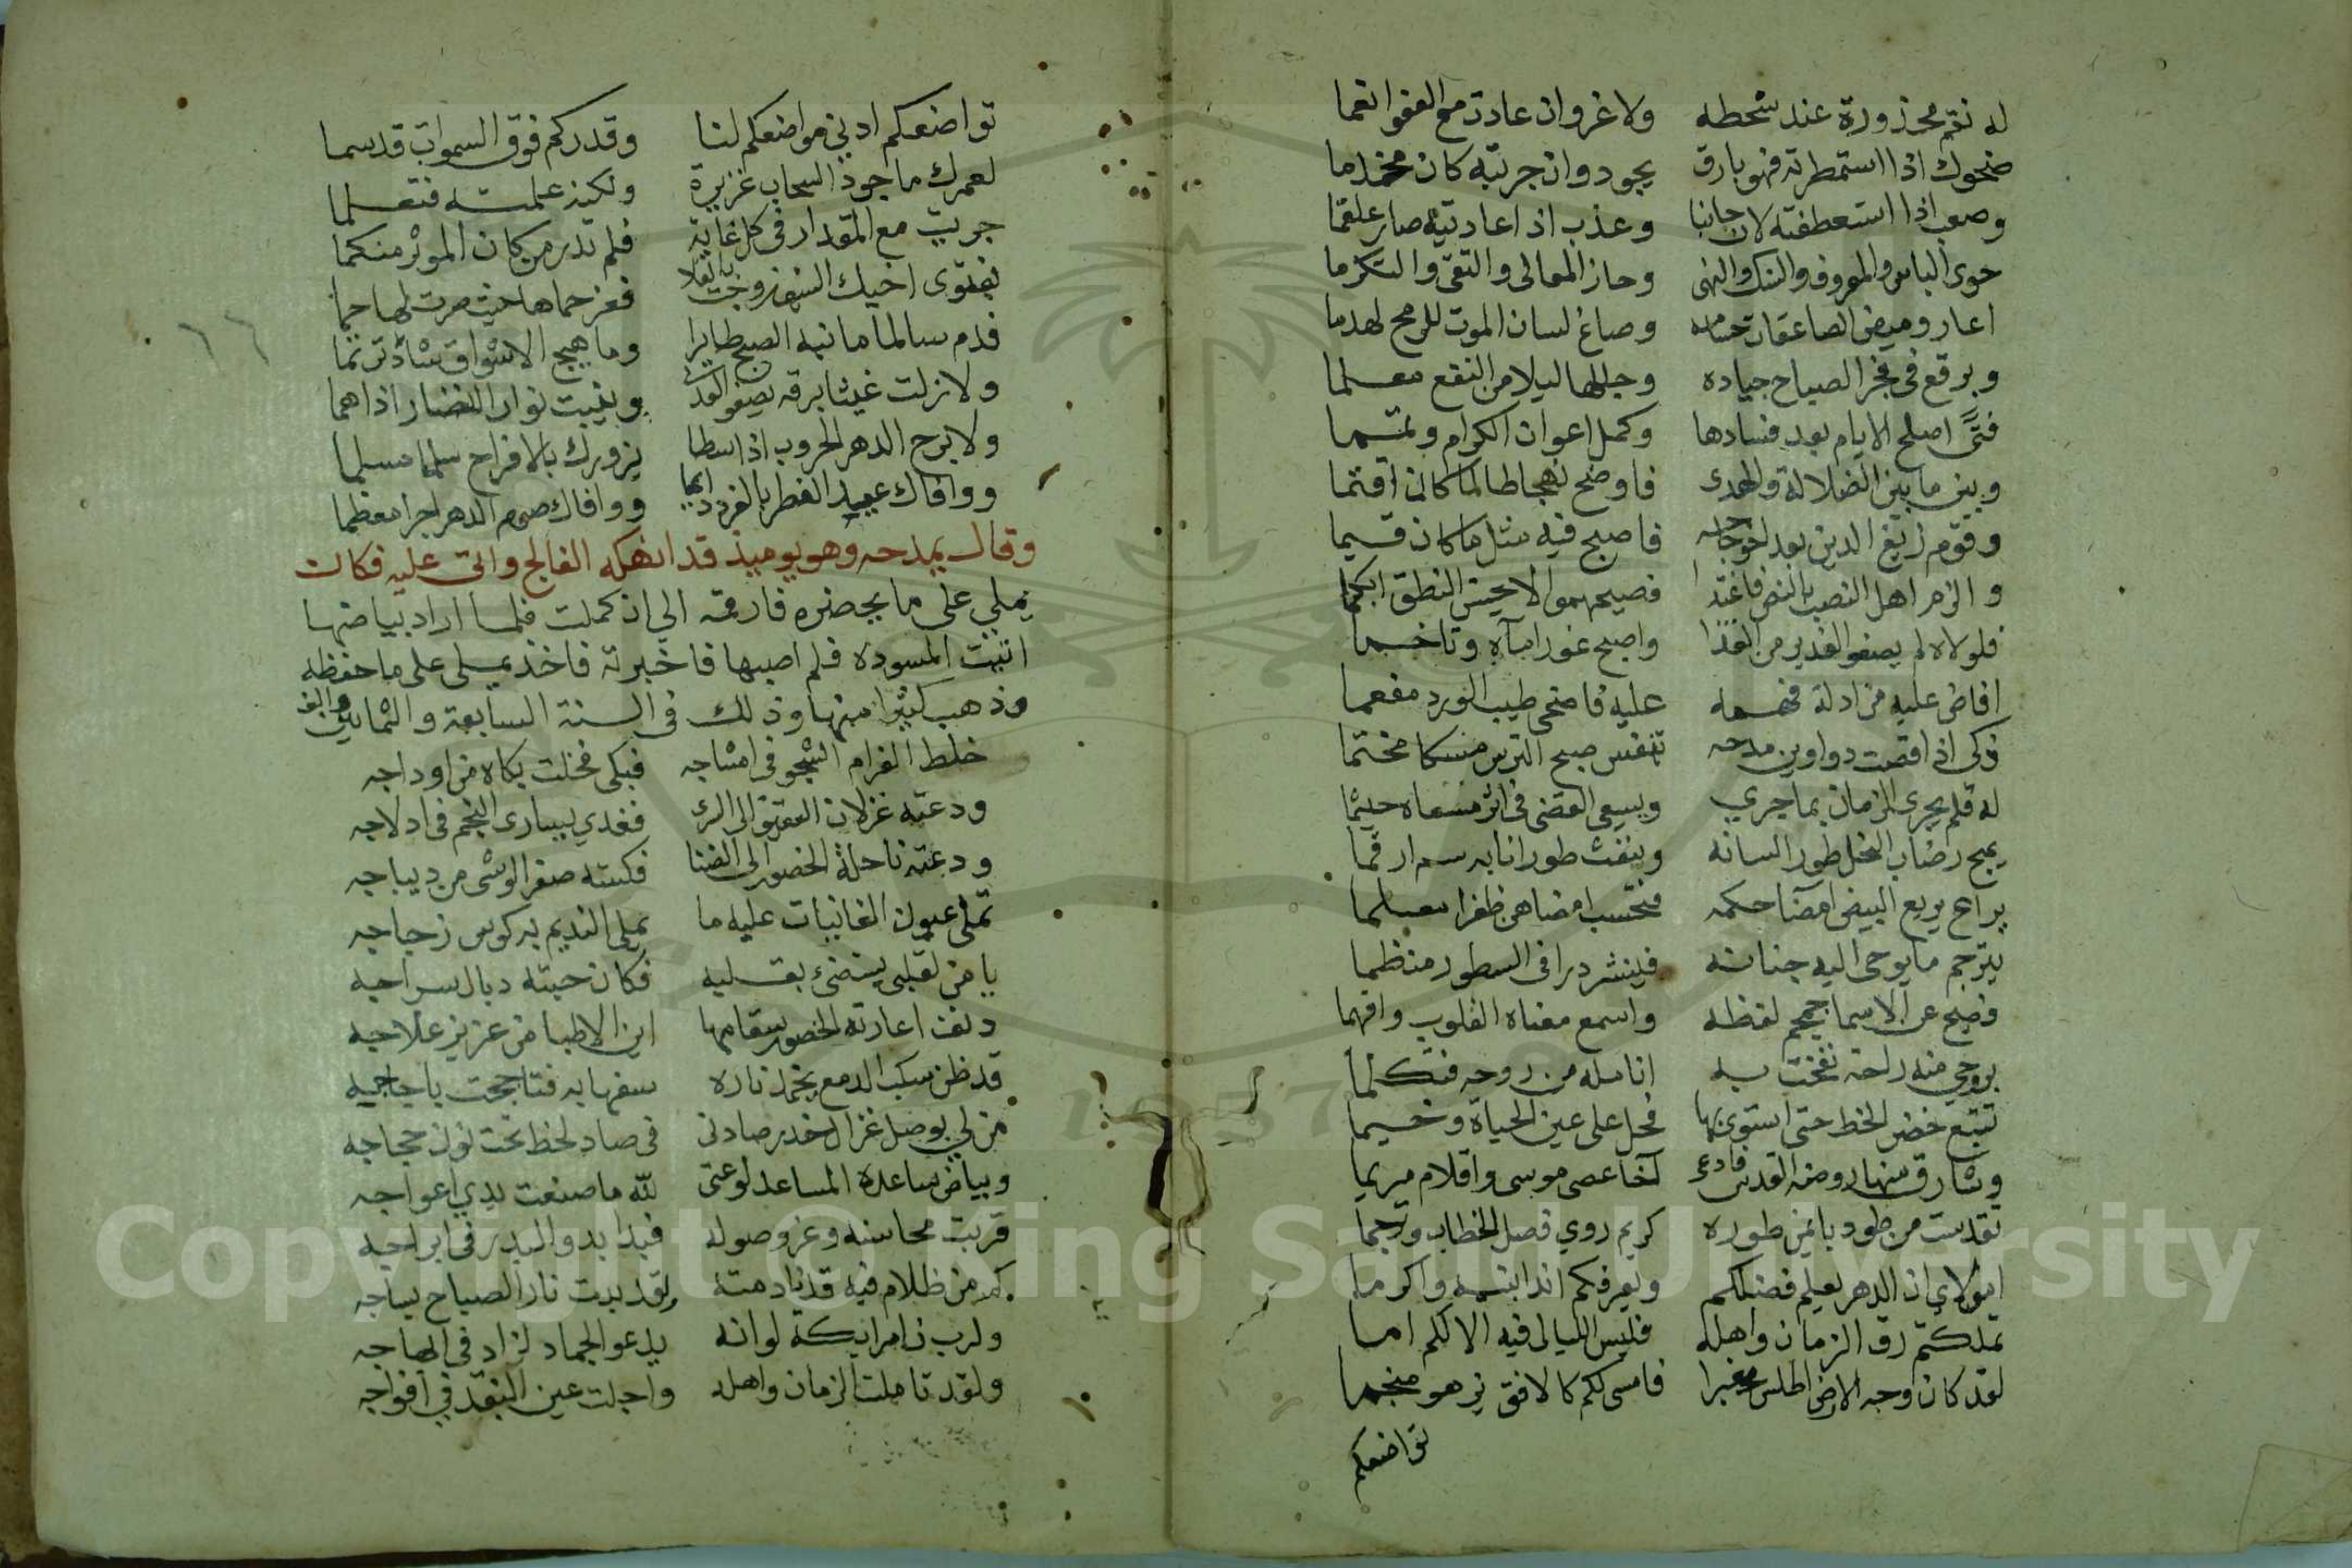 له نقم محذورة عند سخطه ولا غرو ان عادت مع العفو انعما
ضحوك اذا استمطرته فهو بارق يجود وان جربته كان مخذما
وصعب اذا استعطفته لان جانبا وعذب اذا عاديته صار علقما
حوى الباس والمعروف والنسك والنهى وحاز المعالى والتقى والتكرما
اعار وميض الصاعقات حسامه وصاغ لسان الموت للرمح لهدما
وبرقع فى فجر الصباح جياده وجللها ليلا من النقع معلما
فتًى اصلح الايام بعد فسادها وكمل اعوان الكرام وتمما
وبين ما بين الضلالة والهدى فاوضح نهجا طالما كان اقتما
وقوم زيغ الدين بعد اعوجاجه فاصبح فيه مثل ما كان قيما
والزم اهل النصب بالنص فاغتدا فصيحهموا لا يحسن النطق ابكما
فلولاه لم يصفو الغدير من القذا واصبح غورا مآؤه وتاخما
افاض عليه من ادلة فهمه عليه فاضحى طيب الورد مفعما
ذكى اذا فضت دواوين مدحه تنفس صبح الترس مسكا مختما
له قلم يجرى الزمان بما جرى ويسعى القضى فى اثر مسعاه حيثما
يمج رضاب النحل طورا لسانه وينفث طورا نابه سم ارقما
يراع يريع البيض امضا حكمه فتحسب امضاهن ظفرا مقلما
يترجم ما يوحى اليه جنانه فينثر درا فى السطور منظما
فصيح عن الاسما جمجم لفظه واسمع معناه القلوب وافهما
بروحي منه راحة نفخت به انامله من روحه فتكلما
تتبع خضر الخط حتى استوى بها فحل على عين الحياة وخيما
وشارف منها روضة القدس فادعى آخا عصى موسى واقلام مريما
تقدست من طود بايمن طوره كريم روي فصل الخطاب وترجما
امولاى ان الدهر يعلم فضلكم ويعرفكم اندا بنيه واكرما
تملكتم رق الزمان واهله فليس الليالى فيه الا لكم اما
لقد كان وجه الارض اطلس مغبرا فامسى لكم كالافق يزهو منجما
تواضعكم
تواضعكم ادنى مواضعكم لنا وقدركم فوق السموات قد سما
لعمرك ما جود السحاب غزيرة ولكنه علمته فتعلما
جريت مع المقدار فى كل غاية فلم تدر من كان الموثر منكما
بفتوى اخيك السيف زوجت بالعلا فعز حماها حيث صرت لها حما
فدم سالما ما نبه الصبح طايرا وما هيج الاشواق شاد ترنما
ولا زلت غيثا برقه يصعق العدا وينبت نوار النضار اذا هما
ولا برح الدهر الحروب اذا سطا يزورك بالافراح سلما مسلما
ووافاك عيد الفطر بالفرد دايما ووافاك صوم الدهر اجرا معظما
وقال يمدحه وهو يوميذ قد انهكه الفالج واتى عليه فكان
يملى على ما يحضره فارقمه الى ان كملت فلما اراد بياضها
اتيت المسوده فلم اصبها فاخبرته فاخذ يملى على ما حفظه
وذهب كثيرا منها وذلك فى السنة السابعة والثمانين والف
خلط الغرام الشجو فى امشاجه فبكى فخلت بكاه من اوداجه
ودعته غزلان العقيق الى السرى فغدى يسارى النجم فى ادلاجه
ودعته ناحلة الخصور الى الضنا فكسته صفر الوشى من ديباجه
تملى عيون الغانيات عليه ما يملى النديم به كوس زجاجه
يا من لقلبى يستضئ بقلبه فكان حبته ذبال سراجه
دنف اعارته الخصور سقامها اين الاطبا من عزيز علاجه
قد ظن سكب الدمع يخمد ناره سفها به فتاججت باجاجه
من لي بوصل غزال خدر صادنى فى صاد لحظ تحت نون حجاجه
وبياض ساعده المساعد لوعتى لله ما صنعت يدي عواجه
قربت محاسنه وعز وصوله فبدا يدو البدر فى ابراجه
كم من ظلام فيه قد نادمته ولقد بدت نار الصباح بساجه
ولرب زامر ايكة لو انه يدعو الجماد لزاد فى الهاجه
ولقد تاملت الزمان واهله واجلت عين النقد في افواجه